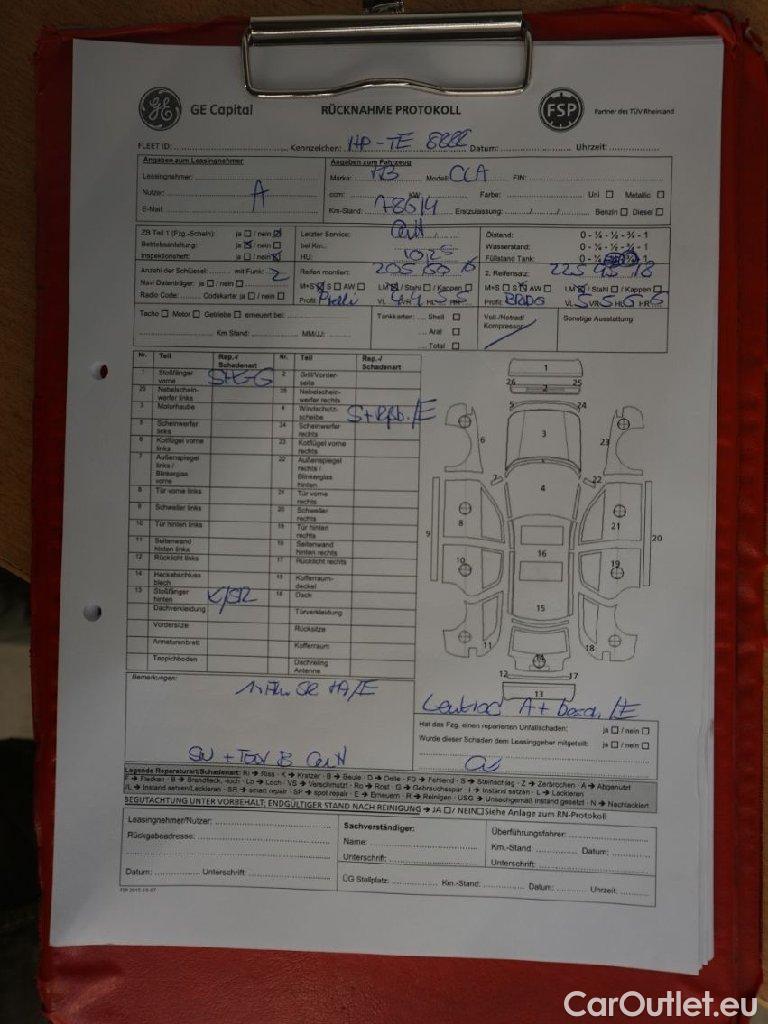 GE Capital RÜCKNAHME PROTOKOLL FSP Partner des TÜV Rheinland
FLEET ID: Kennzeichen: HP-TE 8888 Datum: Uhrzeit:
Angaben zum Leasingnehmer Angaben zum Fahrzeug
Leasingnehmer: Marke: MB Modell: CLA FIN:
Nutzer: A ccm: KW: Farbe: Uni Metallic
E-Mail: Km-Stand: 78614 Erstzulassung: Benzin Diesel
ZB Teil 1 (Fzg.-Schein): ja / nein Letzter Service: Ölstand: 0 - ¼ - ½ - ¾ - 1
Betriebsanleitung: ja / nein bei Km: Wasserstand: 0 - ¼ - ½ - ¾ - 1
Inspektionsheft: ja / nein HU: Füllstand Tank:
Anzahl der Schlüssel: mit Funk: 2 Reifen montiert: 205 60 16 2. Reifensatz: 225 45 18
Navi Datenträger: ja / nein M+S S AW LM / Stahl / Kappen M+S S AW LM / Stahl / Kappen
Radio Code: Codekarte: ja / nein Profil: VL VR HL HR Profil: VL 5 VR 5 HL 5 HR 5
Tacho Motor Getriebe erneuert bei: Tankkarten: Shell Voll-/Notrad/ Sonstige Ausstattung
Kompressor
Km Stand: MM/JJ: Aral
Total
Nr. Teil Rep.-/ Schadenart Nr. Teil Rep.-/ Schadenart
1 Stoßfänger vorne 2 Grill/Vorderseite
25 Nebelscheinwerfer links 26 Nebelscheinwerfer rechts
3 Motorhaube 4 Windschutzscheibe
5 Scheinwerfer links 24 Scheinwerfer rechts
6 Kotflügel vorne links 23 Kotflügel vorne rechts
7 Außenspiegel links / Blinkerglas vorne 22 Außenspiegel rechts / Blinkerglas hinten
8 Tür vorne links 21 Tür vorne rechts
9 Schweller links 20 Schweller rechts
10 Tür hinten links 19 Tür hinten rechts
11 Seitenwand hinten links 18 Seitenwand hinten rechts
12 Rücklicht links 17 Rücklicht rechts
14 Heckabschluss blech 15 Kofferraumdeckel
13 Stoßfänger hinten K/SR 16 Dach
Dachverkleidung Türverkleidung
Vordersitze Rücksitze
Armaturenbrett Kofferraum
Teppichboden Dachreling Antenne
1
26 25
2
5 24
6 3 23
7 22
4
8 21
9 20
16
10 19
15
11 18
14
12 17
13
Bemerkungen:
Hat das Fzg. einen reparierten Unfallschaden: ja / nein
Wurde dieser Schaden dem Leasinggeber mitgeteilt: ja / nein
Legende Reparaturart/Schadenart: Ri → Riss - K → Kratzer - B → Beule - D → Delle - FD → Fehlend - S → Steinschlag - Z → Zerbrochen - A → Abgenutzt
F → Flecken - B → Brandfleck, -loch - Lo → Loch - VS → Verschmutzt - Ro → Rost - G → Gebrauchsspur - I → Instand setzen - L → Lackieren
/L → Instand setzen/Lackieren - SR → smart repair - SP → spot repair - E → Erneuern - R → Reinigen - USG → Unsachgemäß instand gesetzt - N → Nachlackiert
BEGUTACHTUNG UNTER VORBEHALT; ENDGÜLTIGER STAND NACH REINIGUNG → JA / NEIN Siehe Anlage zum RN-Protokoll
Leasingnehmer/Nutzer: Sachverständiger: Überführungsfahrer:
Rückgabeadresse: Name: Km.-Stand Datum:
Unterschrift: Unterschrift:
Datum: Unterschrift: ÜG Stellplatz: Km.-Stand: Datum: Uhrzeit:
CarOutlet.eu